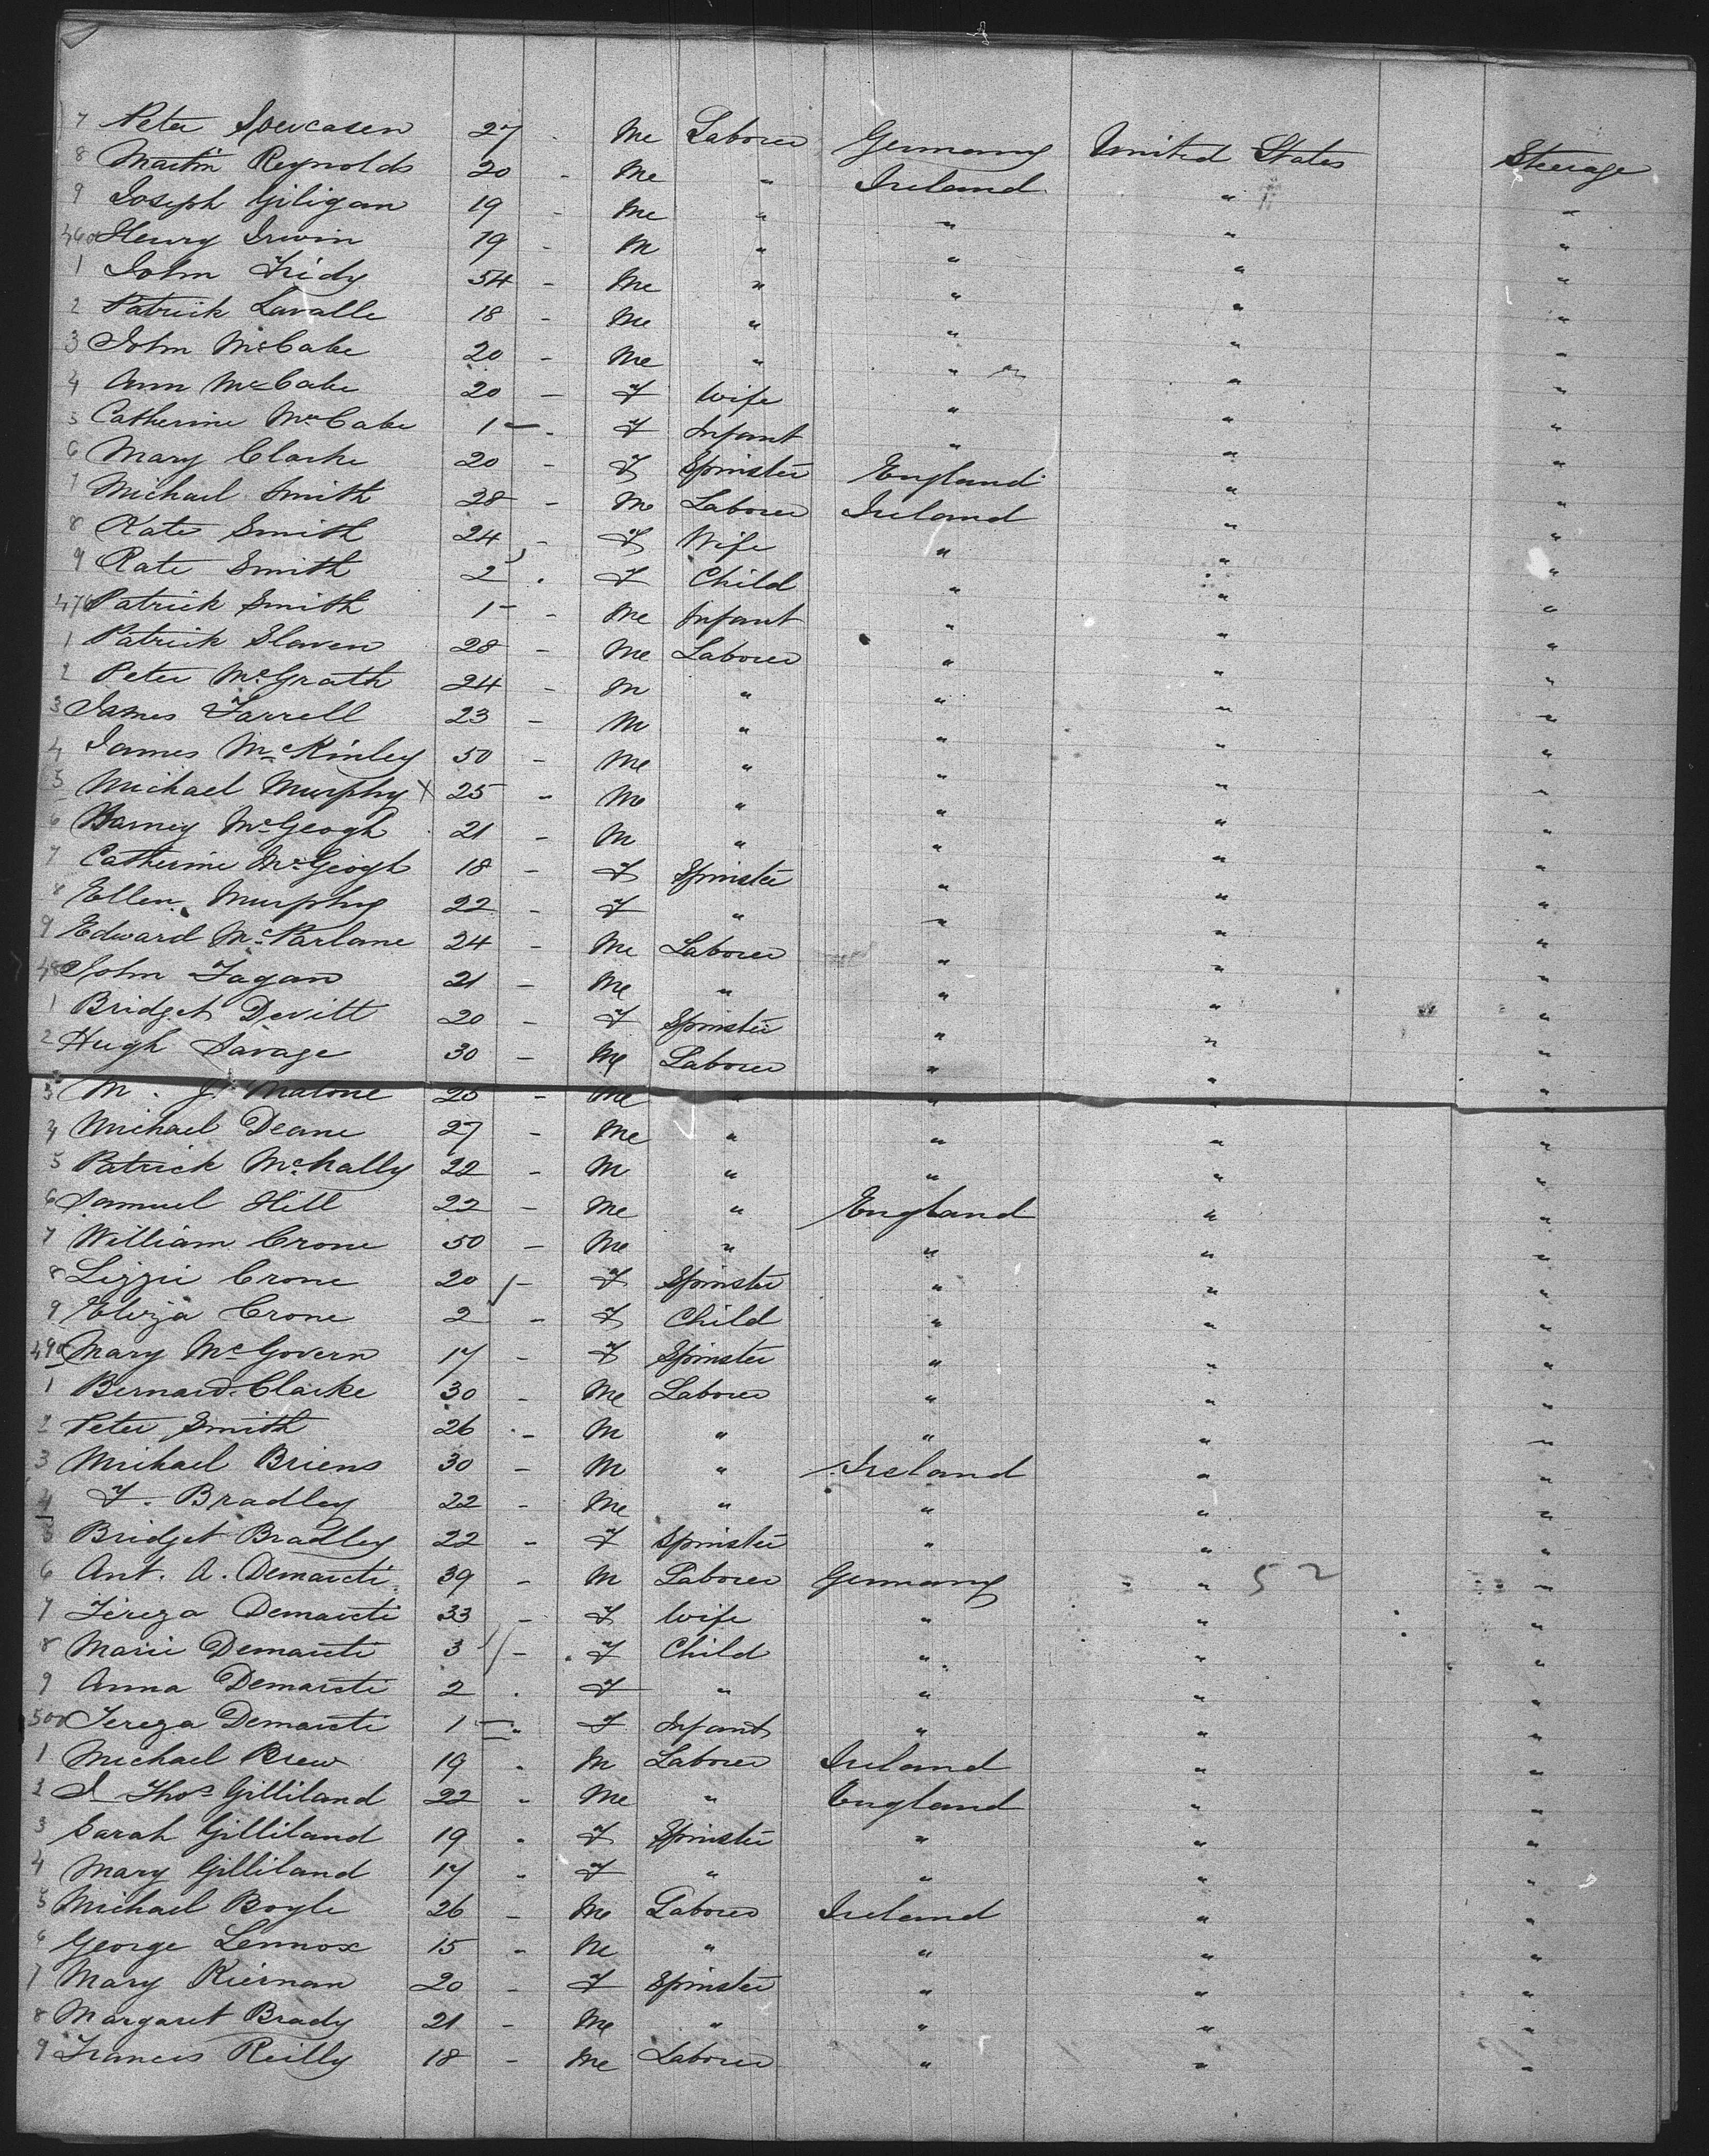 7 Peter 27 - M Laborer Germany United States Steerage
8 Martin Reynolds 20 - M " Ireland " "
9 Joseph Giligan 19 - M " " " "
460 Henry Irwin 19 - M " " " "
1 John 54 - M " " " "
2 Patrick Lavalle 18 - M " " " "
3 John McCabe 20 - M " " " "
4 Ann McCabe 20 - F Wife " " "
5 Catherine McCabe 1 - F Infant " " "
6 Mary Clarke 20 - F Spinster England " "
7 Michael Smith 28 - M Laborer Ireland " "
8 Kate Smith 24 - F Wife " " "
9 Kate Smith 2 - F Child " " "
470 Patrick Smith 1 - M Infant " " "
1 Patrick Slaven 28 - M Laborer " " "
2 Peter McGrath 24 - M " " " "
3 James Farrell 23 - M " " " "
4 James McKinley 50 - M " " " "
5 Michael Murphy X 25 - M " " " "
6 Barney McGeogh 21 - M " " " "
7 Catherine McGeogh 18 - F Spinster " " "
8 Ellen Murphy 22 - F " " " "
9 Edward McParlane 24 - M Laborer " " "
480 John Fagan 21 - M " " " "
1 Bridget Devitt 20 - F Spinster " " "
2 Hugh Savage 30 - M Laborer " " "
3 M. J. Malone 25 - M " " " "
4 Michael Deane 27 - M " " " "
5 Patrick McNally 22 - M " " " "
6 Samuel Hill 22 - M " England " "
7 William Crone 50 - M " " " "
8 Lizzie Crone 20 - F Spinster " " "
9 Eliza Crone 2 - F Child " " "
490 Mary McGovern 17 - F Spinster " " "
1 Bernard Clarke 30 - M Laborer " " "
2 Peter Smith 26 - M " " " "
3 Michael Briens 30 - M " Ireland " "
4 F. Bradley 22 - M " " " "
5 Bridget Bradley 22 - F Spinster " " "
6 Ant. A. Demarcti 39 - M Laborer Germany " 52 "
7 Tereza Demarcti 33 - F Wife " " "
8 Marie Demarcti 3 - F Child " " "
9 Anna Demarcti 2 - F " " " "
500 Tereza Demarcti 1 - F Infant " " "
1 Michael Brew 19 - M Laborer Ireland " "
2 J Thos Gilliland 22 - M " England " "
3 Sarah Gilliland 19 - F Spinster " " "
4 Mary Gilliland 17 - F " " " "
5 Michael Boyle 26 - M Laborer Ireland " "
6 George Lennox 15 - M " " " "
7 Mary Kiernan 20 - F Spinster " " "
8 Margaret Brady 21 - M " " " "
9 Francis Reilly 18 - M Laborer " " "